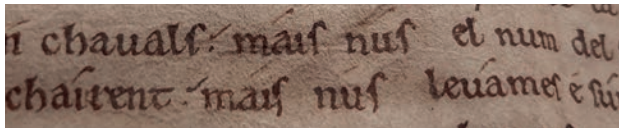 n chauals. mais nus el num del
chairent. mais nus leuames e sui